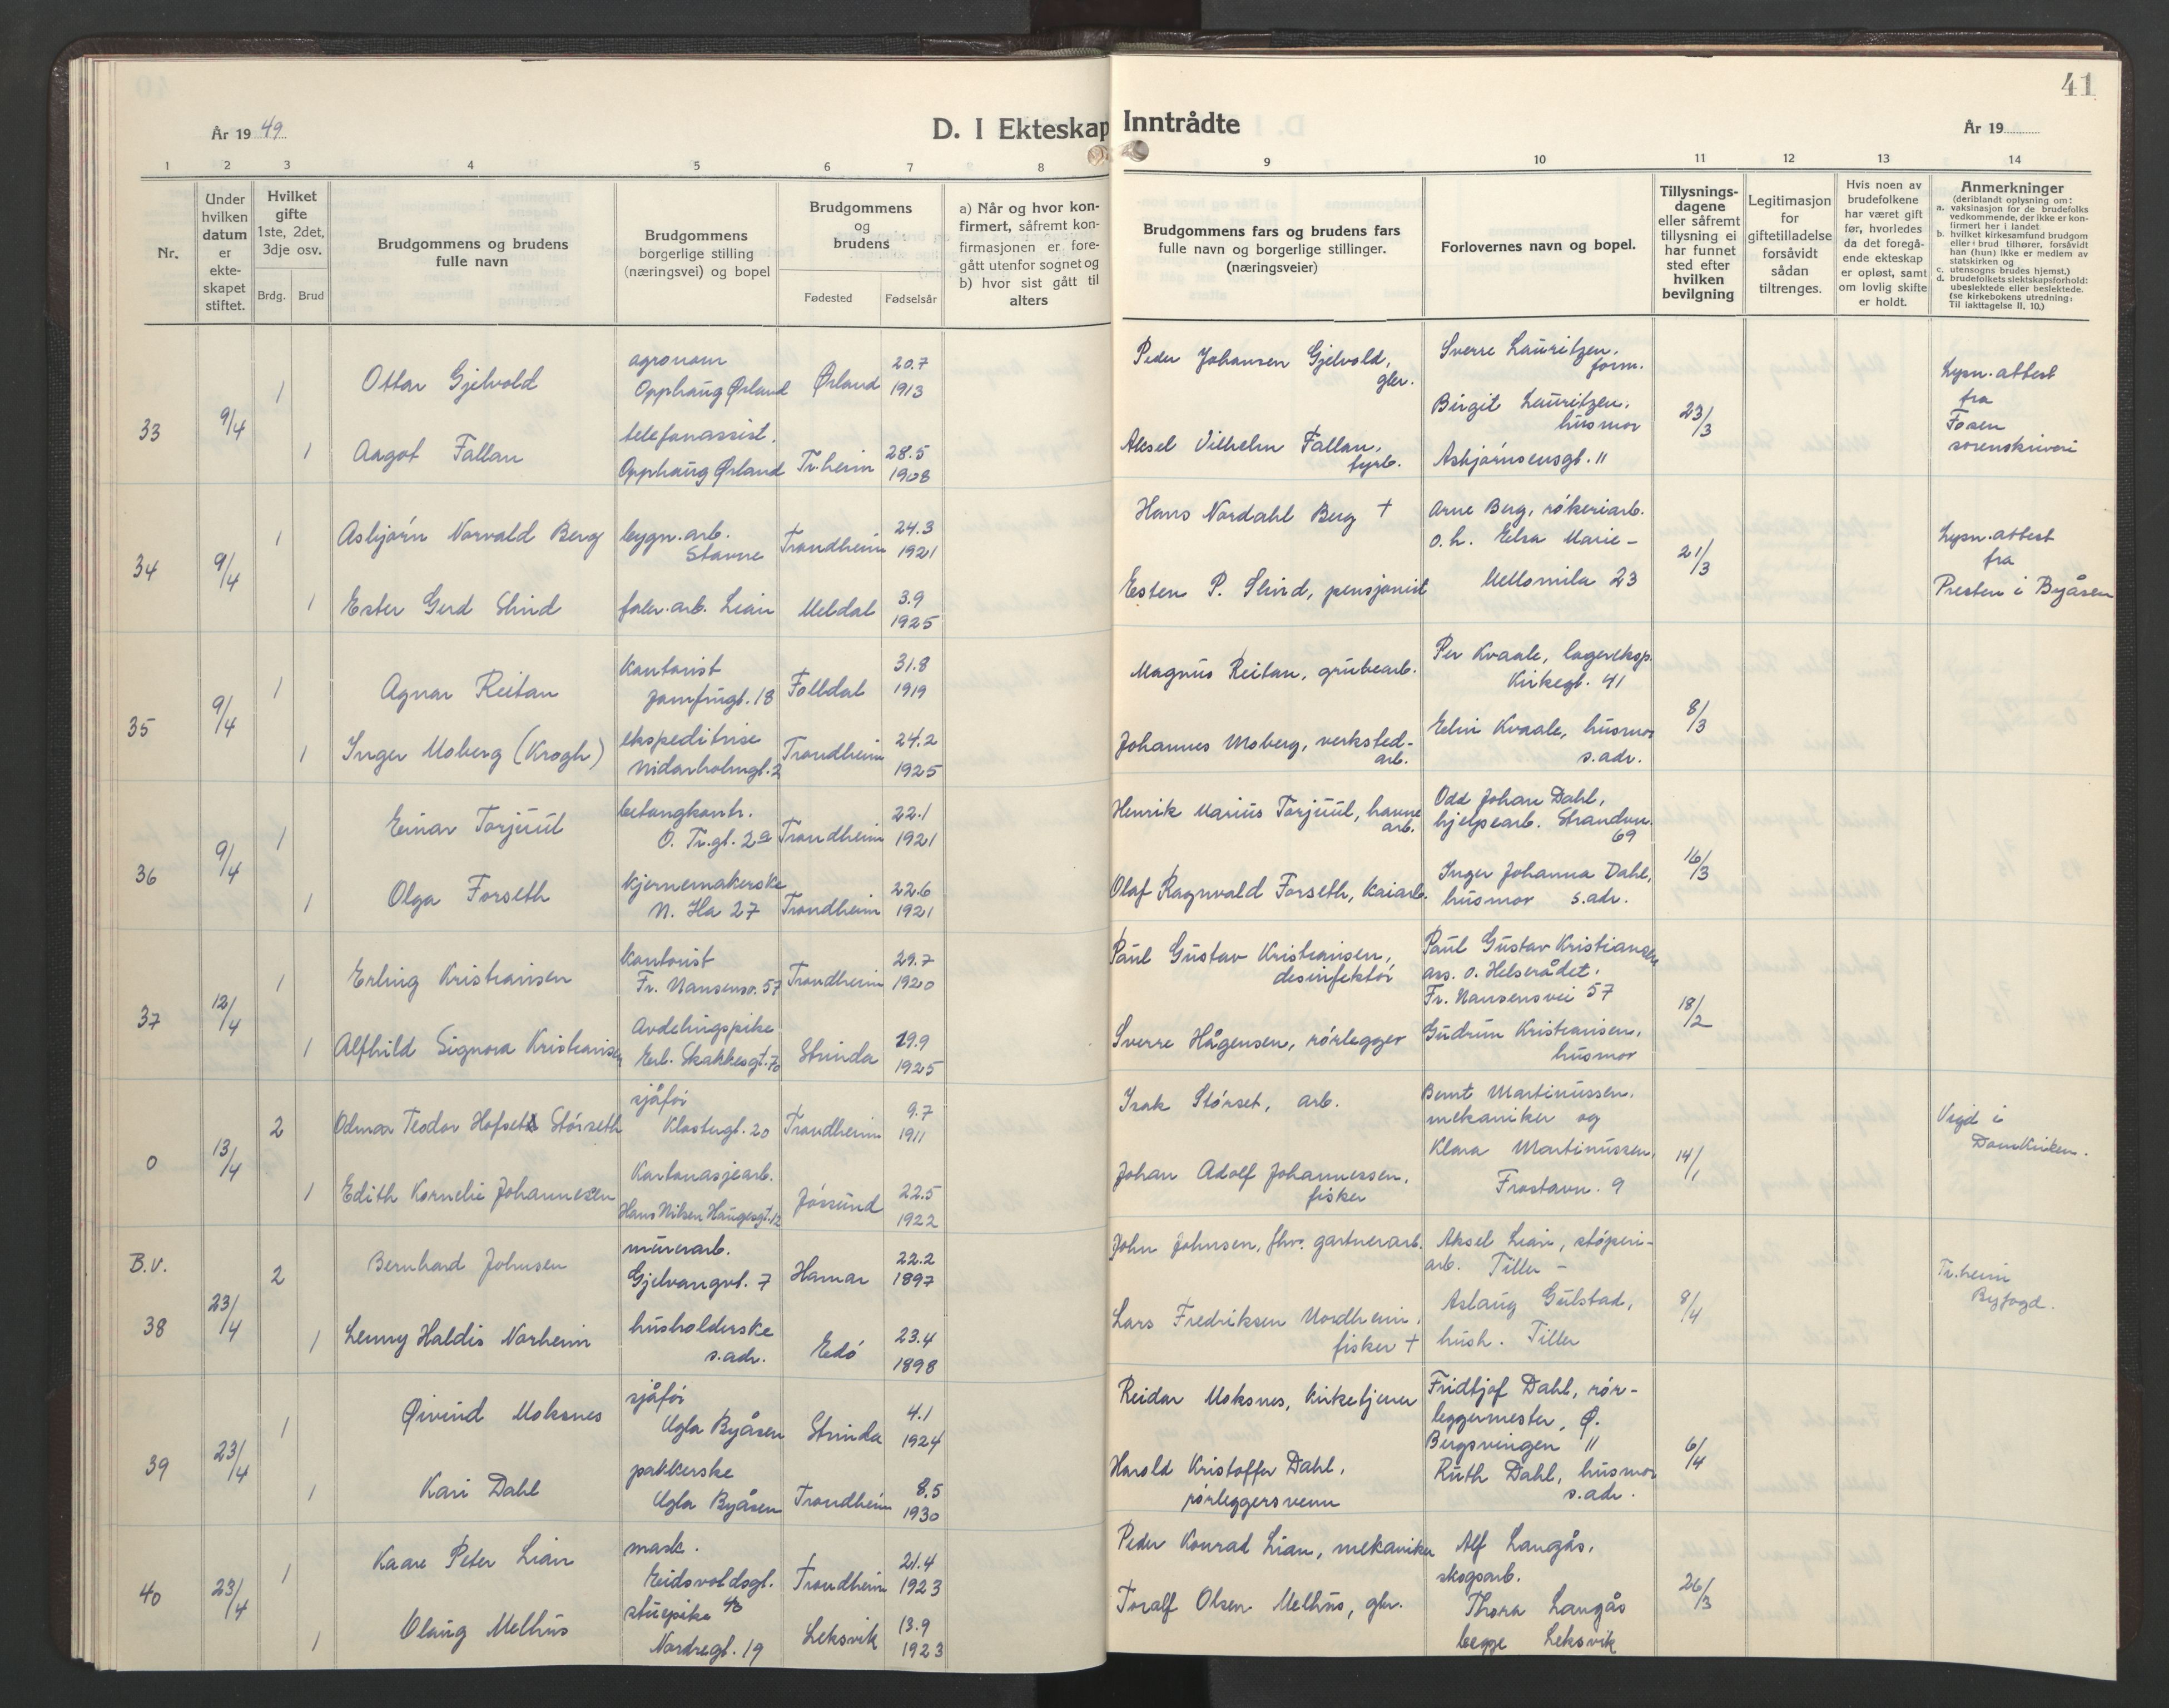 41
År 19 49
D. I Ekteskap Inntrådte
År 19
1 2 3 4 5 6 7 8 9 10 11 12 13 14
Nr.
Under hvilken datum er ekte-skapet stiftet.
Hvilket gifte 1ste, 2det, 3dje osv.
Brdg. Brud
Brudgommens og brudens fulle navn
Brudgommens borgerlige stilling (næringsvei) og bopel
Brudgommens og brudens
Fødested Fødselsår
a) Når og hvor kon-firmert, såfremt kon-firmasjonen er fore-gått utenfor sognet og
b) hvor sist gått til alters
Brudgommens fars og brudens fars fulle navn og borgerlige stillinger. (næringsveier)
Forlovernes navn og bopel.
Tillysnings-dagene eller såfremt tillysning ei har funnet sted efter hvilken bevilgning
Legitimasjon for giftetilladelse forsåvidt sådan tiltrenges.
Hvis noen av brudefolkene har været gift før, hvorledes da det foregå-ende ekteskap er opløst, samt om lovlig skifte er holdt.
Anmerkninger
(deriblandt oplysning om:
a. vaksinasjon for de brudefolks vedkommende, der ikke er kon-firmert her i landet
b. hvilket kirkesamfund brudgom eller brud tilhører, forsåvidt han (hun) ikke er medlem av statskirken og
c. utensogns brudes hjemst.)
d. brudefolkets slektskapsforhold: ubeslektede eller beslektede.
(se kirkebokens utredning: Til iakttagelse II. 10.)
33 9/4
1 Ottar Gjelvold agronom Opphaug Ørland Ørland 20.7 1913
Peder Johansen Gjelvold, gbr.
Sverre Lauritzen, form.
Birgit Lauritzen, husmor
Asbjørnsensgt. 11
23/3
Lysn.attest fra Fosen sorenskriveri
1 Aagot Fallan telefonassist. Opphaug Ørland Tr.heim 28.5 1908
Aksel Vilhelm Fallan, fyrb.
34 9/4
1 Asbjørn Norvald Berg bygn.arb. Stavne Trondheim 24.3 1921
Hans Nordahl Berg +
Arne Berg, røkeriarb.
o.h. Elsa Marie -
Mellomila 23
21/3
Lysn.attest fra Presten i Byåsen
1 Ester Gerd Slind fabr.arb. Lian Meldal 3.9 1925
Esten P. Slind, pensjonist
35 9/4
1 Agnar Reitan Kontorist Jomfrugt. 18 Folldal 31.8 1919
Magnus Reitan, grubearb.
Per Kvaale, lagereksp.
Kirkegt. 41
Elin Kvaale, husmor
s.adr.
8/3
1 Inger Moberg (Krogh) ekspeditrise Nidarholmgt. 2 Trondheim 24.2 1925
Johannes Moberg, verksted-arb.
36 9/4
1 Einar Torjuul betongkontr. O. Tr.gt. 2a Trondheim 22.1 1921
Henrik Marius Torjuul, havnearb.
Odd Johan Dahl,
hjelpearb. Strandvn. 69
Inger Johanna Dahl,
husmor s.adr.
16/3
1 Olga Forseth Kjernemakerske N. Ila 27 Trondheim 22.6 1921
Olaf Ragnvald Forseth, Kaiarb.
37 12/4
1 Erling Kristiansen Kontorist Fr. Nansensv. 57 Trondheim 29.7 1920
Paul Gustav Kristiansen, desinfektør
Paul Gustav Kristiansen
ass. v. Helserådet,
Fr. Nansensvei 57
Gudrun Kristiansen, husmor
18/2
1 Alfhild Signora Kristiansen Avdelingspike Erl. Skakkesgt. 70 Strinda 29.9 1925
Sverre Hågensen, rørlegger
0 13/4
2 Odmar Teodor Hofseth Størseth sjåfør Klostergt. 20 Trondheim 9.7 1911
Isak Størset, arb.
Bernt Martinussen,
mekaniker og
Klara Martinussen,
Frostavn. 9
14/1
Vigd i Domkirken.
1 Edith Kornelie Johannesen Kartonasjearb. Hans Nilsen Haugesgt. 12 Jøssund 22.5 1922
Johan Adolf Johannessen, fisker
B.V.
38 23/4
2 Bernhard Johnsen murerarb. Gjelvangvt. 7 Hamar 22.2 1897
John Johnsen, fhv. gartnerarb.
Aksel Lian, støperi-
arb. Tiller -
Aslaug Gulstad,
hush. Tiller
8/4
Tr.heim Byfogd.
1 Lenny Haldis Norheim husholderske s.adr. Edø 23.4 1898
Lars Fredriksen Nordheim, fisker +
39 23/4
1 Øivind Moksnes sjåfør Ugla Byåsen Strinda 4.1 1924
Reidar Moksnes, Kirketjener
Fridtjof Dahl, rør-
leggermester, Ø.
Bergsvingen 11
Ruth Dahl, husmor
s.adr.
6/4
1 Kari Dahl pakkerske Ugla Byåsen Trondheim 8.5 1930
Harald Kristoffer Dahl, rørleggersvenn
40 23/4
1 Kaare Peter Lian mask. Eidsvoldsgt. 40 Trondheim 21.4 1923
Peder Konrad Lian, mekaniker
Alf Langås,
skogsarb.
Thora Langås
begge Leksvik
26/3
1 Olaug Melhus stuepike Nordregt. 19 Leksvik 13.9 1923
Toralf Olsen Melhus, gbr.